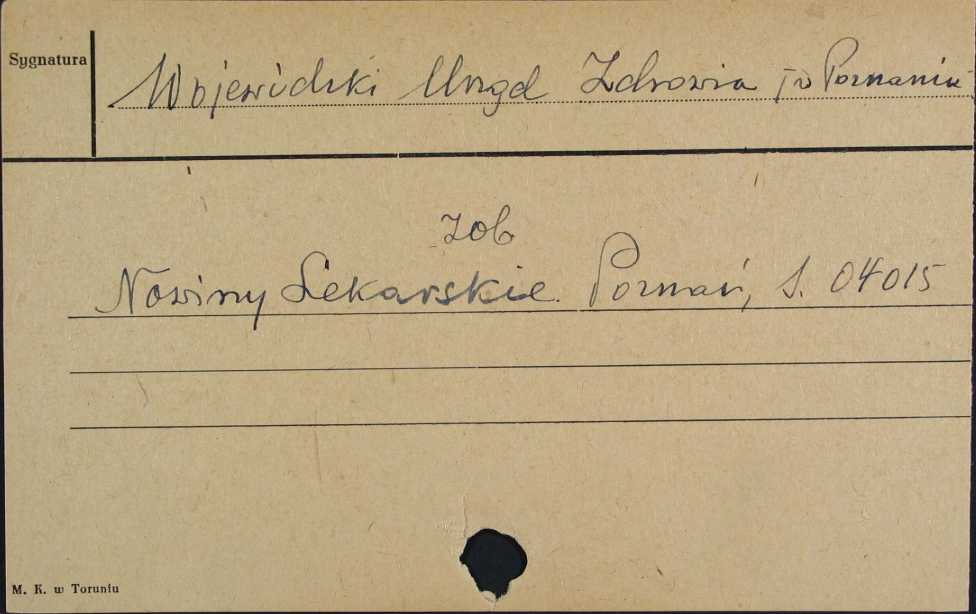 Sygnatura
Wojewódzki Urząd Zdrowia w Poznaniu
zob
Nowiny Lekarskie. Poznań, S. 04015
M. K. w Toruniu